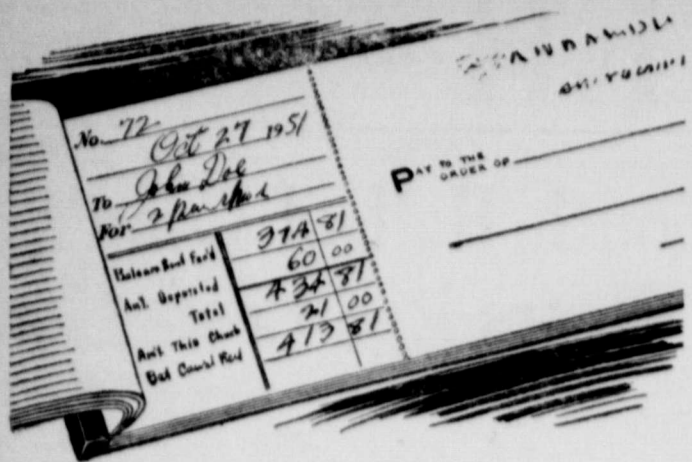 No. 72
Oct 27 1951
To John Doe
For 2 Pair
Balance Bro't For'd 374 81
Am't. Deposited 60 00
Total 434 81
Am't This Check 21 00
Bal Car'd For'd 413 81
PAY TO THE
ORDER OF